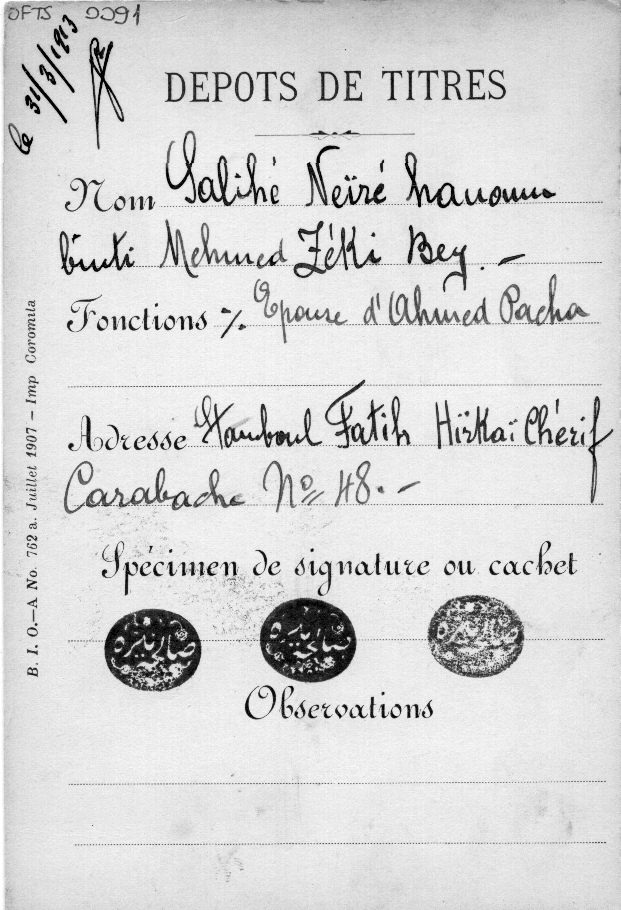 OFTS 0091
le 31/3/1913
DEPOTS DE TITRES
Nom Salihé Neïré hanoum
binti Mehmed Zéki Bey. —
Fonctions %. Epouse d'Ahmed Pacha
Adresse Stamboul Fatih Hirkaï Chérif
Carabache No 48. —
Spécimen de signature ou cachet
صالحه نيره
صالحه نيره
صالحه نيره
Observations
B. I O.—A No. 762 a. Juillet 1907 — Imp Coromila